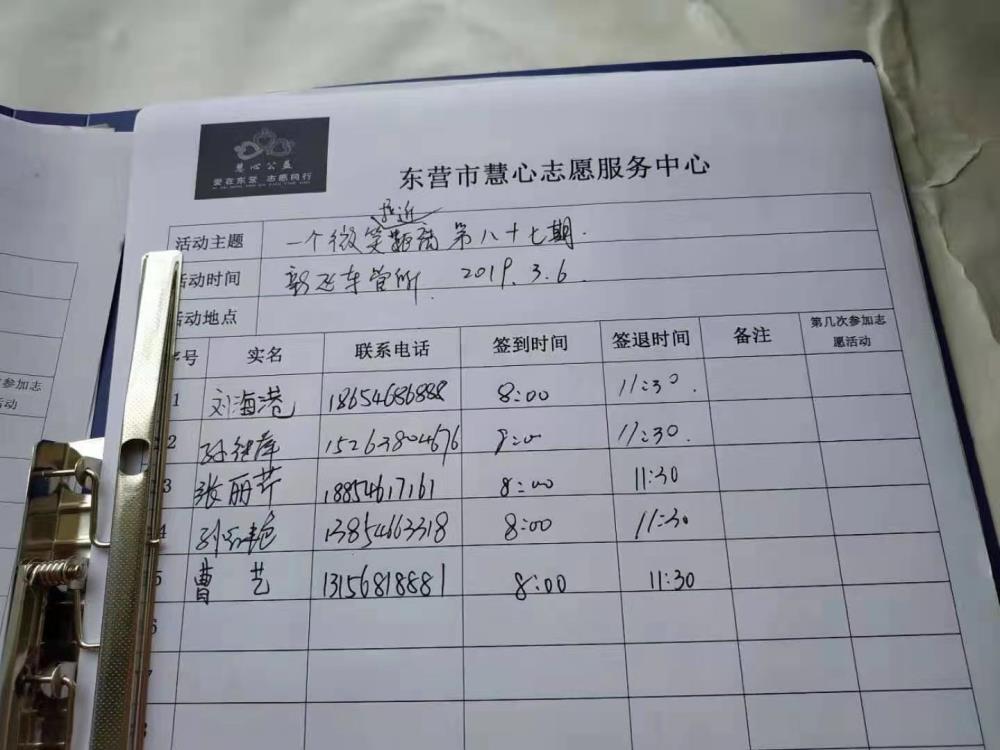 慧心公益
爱在东营 志愿同行
东营市慧心志愿服务中心
活动主题 一个微笑 接近 距离 第八十七期.
活动时间 车管所 2019.3.6.
活动地点
序号 实名 联系电话 签到时间 签退时间 备注 第几次参加志愿活动
1 刘海港 18654686888 8:00 11:30.
2 15263804676 8:00 11:30.
3 张丽芹 18854617161 8:00 11:30
4 艳 13854663318 8:00 11:30
5 曹艺 13156818881 8:00 11:30
6
7
参加志
动